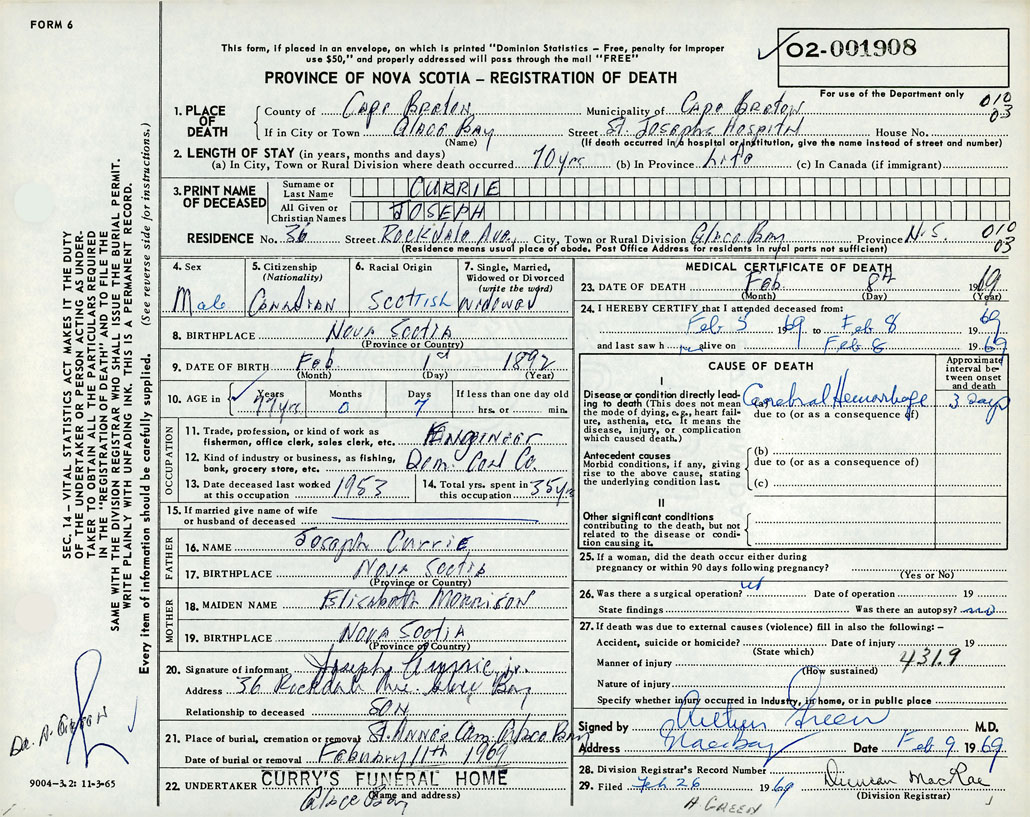 FORM 6
This form, if placed in an envelope, on which is printed "Dominion Statistics – Free, penalty for improper
use $50," and properly addressed will pass through the mail "FREE"
PROVINCE OF NOVA SCOTIA – REGISTRATION OF DEATH
02-001908
For use of the Department only
010
03
1. PLACE OF DEATH
County of Cape Breton Municipality of Cape Breton
If in City or Town Glace Bay Street St. Josephs Hospital House No.
(Name) (If death occurred in a hospital or institution, give the name instead of street and number)
2. LENGTH OF STAY (in years, months and days)
(a) In City, Town or Rural Division where death occurred 70 yrs (b) In Province Life (c) In Canada (if immigrant)
3. PRINT NAME OF DECEASED
Surname or Last Name CURRIE
All Given or Christian Names JOSEPH
RESIDENCE No. 36 Street Rockdale Ave. City, Town or Rural Division Glace Bay Province N.S.
010
03
(Residence means usual place of abode. Post Office Address for residents in rural parts not sufficient)
4. Sex Male
5. Citizenship (Nationality) Canadian
6. Racial Origin Scottish
7. Single, Married, Widowed or Divorced (write the word) Widower
8. BIRTHPLACE Nova Scotia
(Province or Country)
9. DATE OF BIRTH Feb 1st 1892
(Month) (Day) (Year)
10. AGE in Years Months Days If less than one day old
77 yrs 0 7 hrs. or min.
OCCUPATION
11. Trade, profession, or kind of work as fisherman, office clerk, sales clerk, etc. Engineer
12. Kind of industry or business, as fishing, bank, grocery store, etc. Dom. Coal Co.
13. Date deceased last worked at this occupation 1953
14. Total yrs. spent in this occupation 35 yrs
15. If married give name of wife or husband of deceased
FATHER
16. NAME Joseph Currie
17. BIRTHPLACE Nova Scotia
(Province or Country)
MOTHER
18. MAIDEN NAME Elizabeth Morrison
19. BIRTHPLACE Nova Scotia
(Province or Country)
20. Signature of informant Joseph Currie jr.
Address 36 Rockdale Ave. Glace Bay
Relationship to deceased Son
21. Place of burial, cremation or removal St. Anne's Cem. Glace Bay
Date of burial or removal February 11th 1969
22. UNDERTAKER CURRY'S FUNERAL HOME
(Name and address)
Glace Bay
MEDICAL CERTIFICATE OF DEATH
23. DATE OF DEATH Feb 8th 1969
(Month) (Day) (Year)
24. I HEREBY CERTIFY that I attended deceased from:
Feb 5 1969 to Feb 8 1969
and last saw him alive on Feb 8 1969
CAUSE OF DEATH
Approximate interval between onset and death
I
Disease or condition directly leading to death (This does not mean the mode of dying, e.g., heart failure, asthenia, etc. It means the disease, injury, or complication which caused death.)
(a) Cerebral Hemorrhage 3 days
due to (or as a consequence of)
Antecedent causes
Morbid conditions, if any, giving rise to the above cause, stating the underlying condition last.
(b)
due to (or as a consequence of)
(c)
II
Other significant conditions
contributing to the death, but not related to the disease or condition causing it.
25. If a woman, did the death occur either during pregnancy or within 90 days following pregnancy?
(Yes or No)
26. Was there a surgical operation? Date of operation 19
State findings Was there an autopsy? no
27. If death was due to external causes (violence) fill in also the following: –
Accident, suicide or homicide? Date of injury 19
(State which)
431.9
Manner of injury
(How sustained)
Nature of injury
Specify whether injury occurred in Industry, in home, or in public place
Signed by Arthur Green M.D.
Address Glace Bay Date Feb 9 1969
28. Division Registrar's Record Number
29. Filed Feb 26 1969 Duncan MacRae
(Division Registrar)
A GREEN
SEC. 14 – VITAL STATISTICS ACT MAKES IT THE DUTY
OF THE UNDERTAKER OR PERSON ACTING AS UNDER-
TAKER TO OBTAIN ALL THE PARTICULARS REQUIRED
IN THE "REGISTRATION OF DEATH" AND TO FILE THE
SAME WITH THE DIVISION REGISTRAR WHO SHALL ISSUE THE BURIAL PERMIT.
WRITE PLAINLY WITH UNFADING INK. THIS IS A PERMANENT RECORD.
Every item of information should be carefully supplied. (See reverse side for instructions.)
9004-3.2: 11-3-65